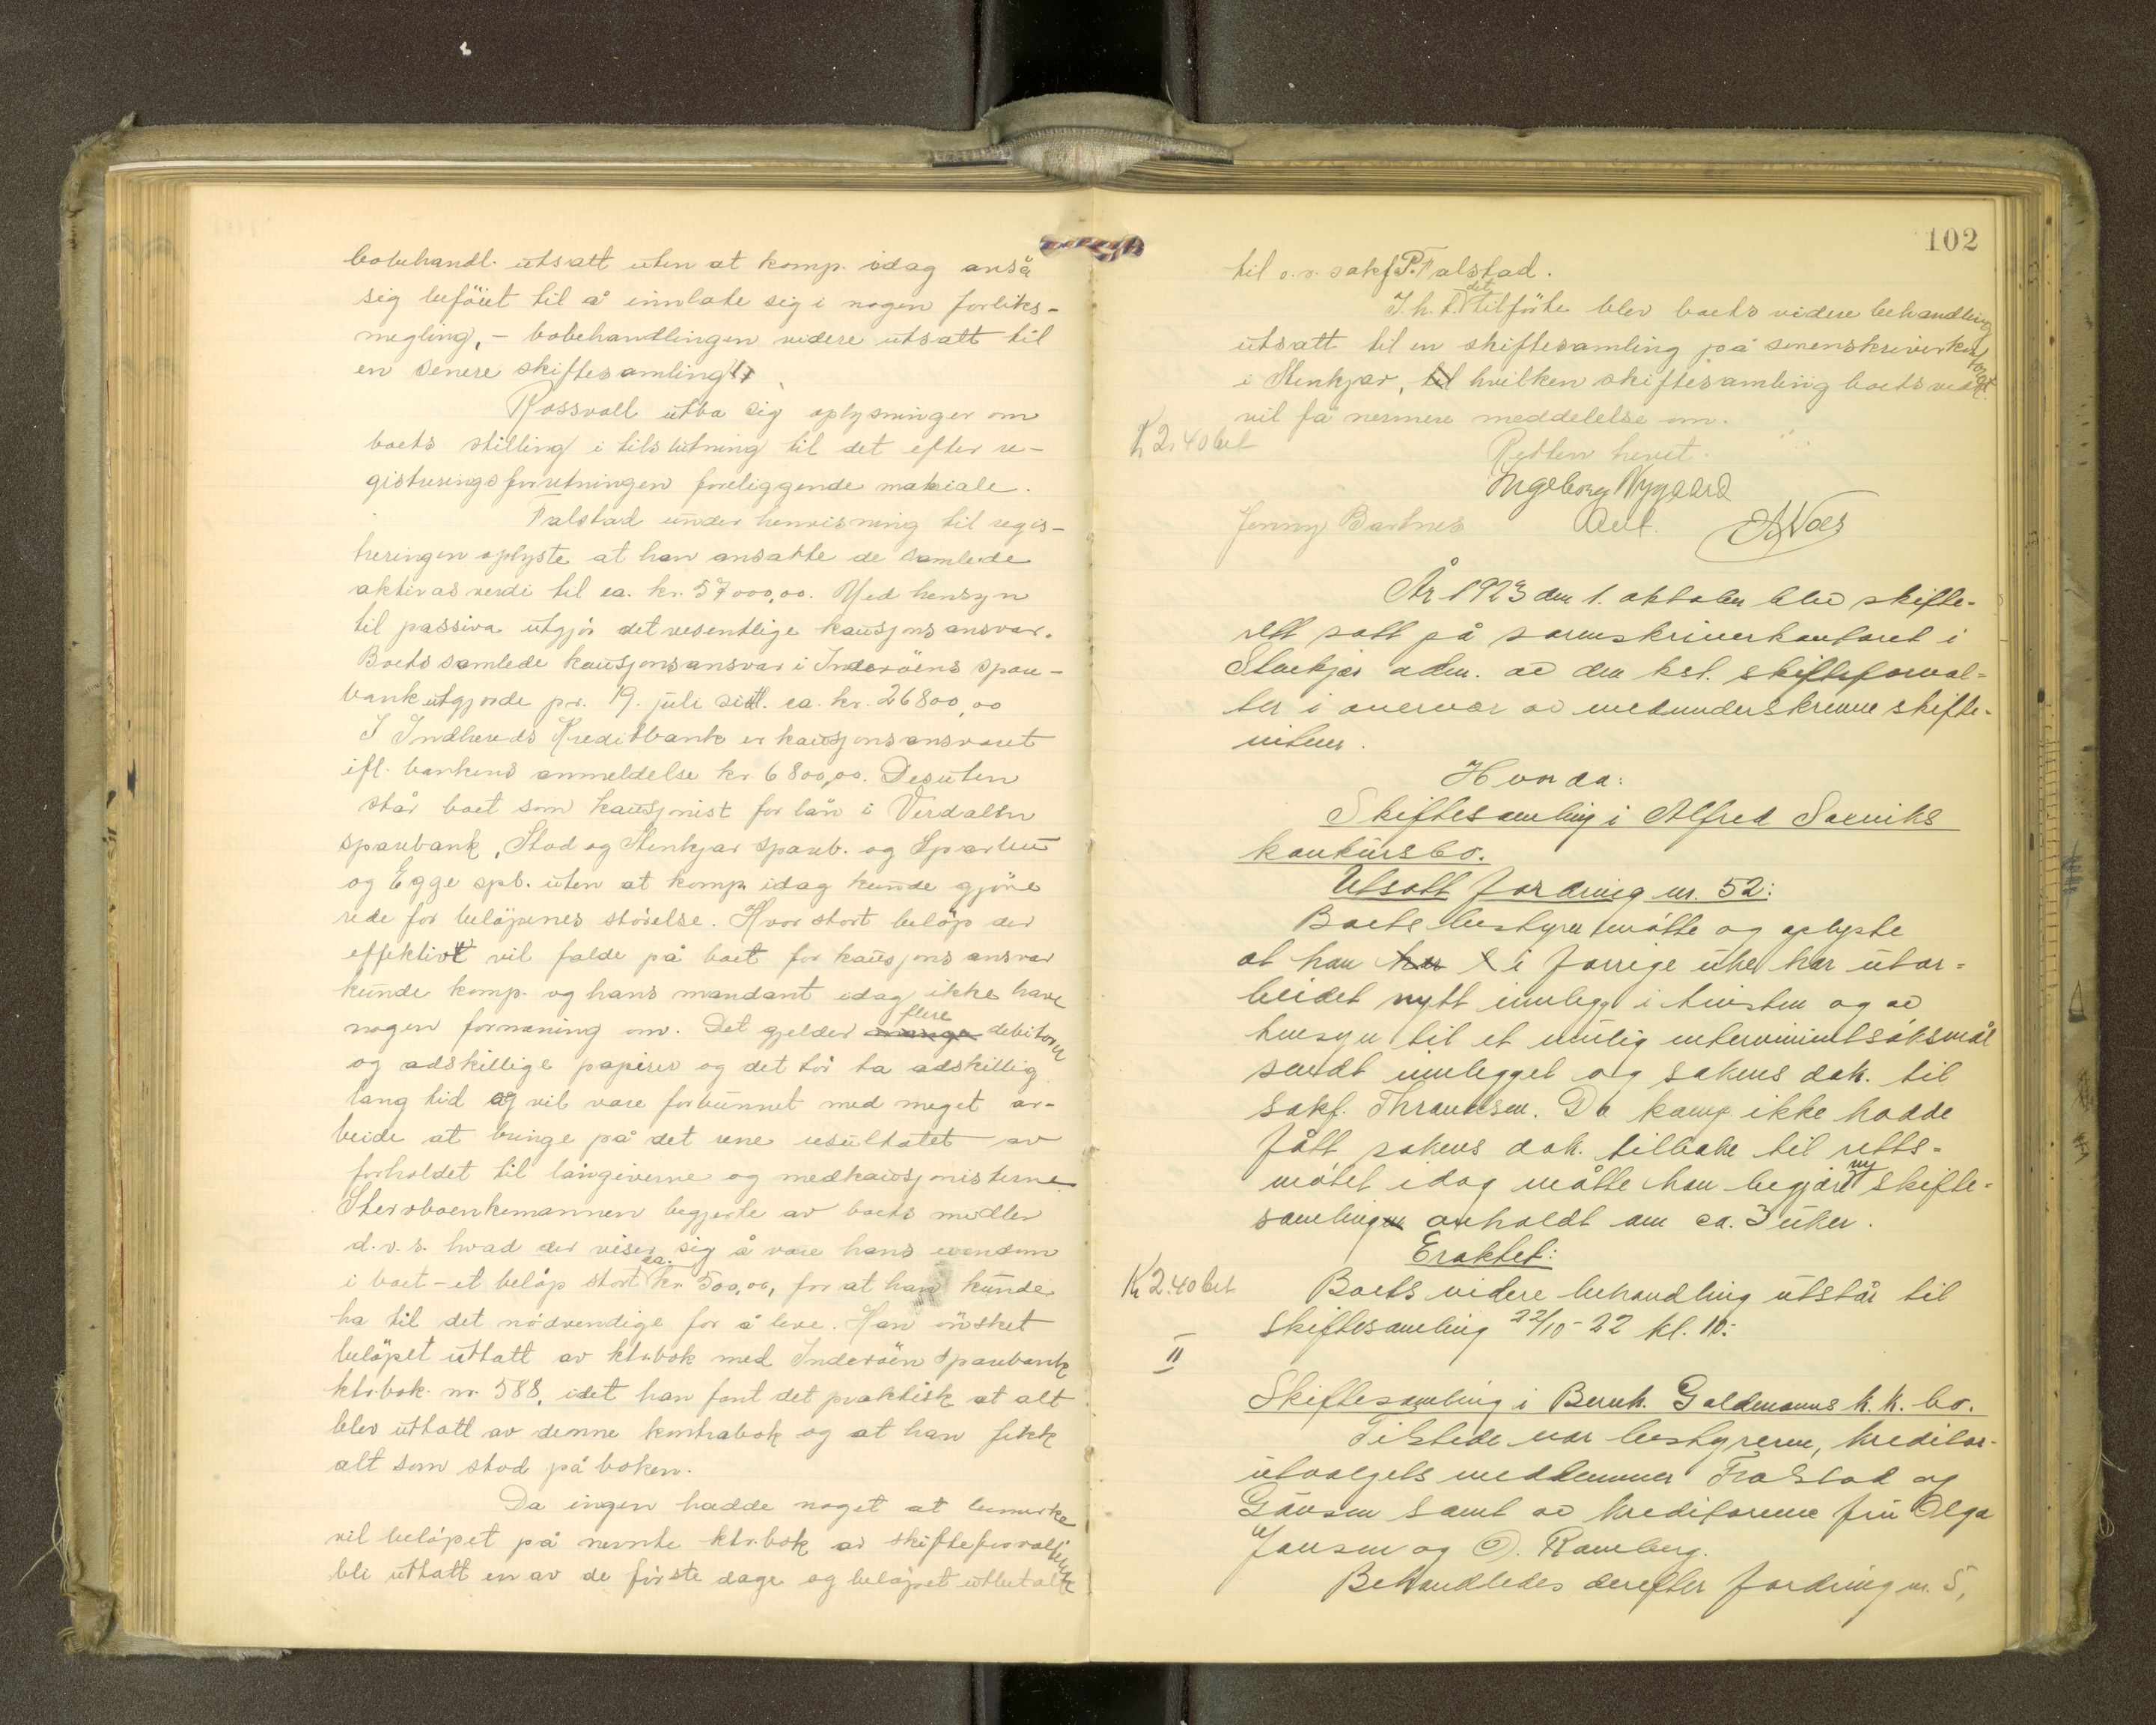 bobehandl. utsatt uten at komp. idag anså
sig beføiet til å innlate sig i nogen forliks-
megling, - bobehandlingen videre utsatt til
en senere skiftesamling.
Rossvoll utba sig oplysninger om
boets stilling i tilslutning til det efter re-
gistreringsforretningen foreliggende materiale.
Falstad under henvisning til regis-
treringen oplyste at han ansatte de samlede
aktivas verdi til ca. kr. 57000,00. Med hensyn
til passiva utgjør det vesentlige kausjonsansvar.
Boets samlede kausjonsansvar i Inderöens spare-
bank utgjorde pr. 19. juli sidtl. ca. kr. 26800,00
I Indherreds Kreditbank er kausjonsansvaret
ifl. bankens anmeldelse kr. 6800,00. Desuten
står boet som kausjonist for lån i Verdalen
sparebank, Stod og Stenkjær spareb. og Sparbu
og Egge spb. uten at komp. idag kunde gjöre
rede for belöpenes störelse. Hvor stort belöp der
effektivt vil falde på boet for kausjonsansvar
kunde komp. og hans mandant idag ikke have
nogen formening om. Det gjelder flere debitorer
og adskillige papirer og det tör ta adskillig
lang tid og vil være forbunnet med meget ar-
beide at bringe på det rene resultatet av
forholdet til långiverne og medkausjonisterne
Stervboenkemannen begjerte av boets midler
d.v.s. hvad der viser sig å være hans eiendom
i boet - et belöp stort ca. kr 500,00, for at han kunde
ha til det nödvendige for å leve. Han önsket
belöpet uttatt av ktrbok med Inderöen Sparebank
ktrbok nr. 588, idet han fant det praktisk at alt
blev uttatt av denne kontrabok og at han fikk
alt som stod på boken.
Da ingen hadde noget at bemerke
vil belöpet på nevnte ktrbok av skifteforvalteren
bli uttatt en av de første dage og belöpet utbetalt
102
til o.r. sakf. P. Falstad.
I.h.t. det tilförte blev boets videre behandling
utsatt til en skiftesamling på sorenskriverkontoret
i Stenkjær, hvilken skiftesamling boets vedk.
vil få nermere meddelelse om.
K 2.40 bet
Retten hevet.
Ingeborg Nygaard
Jenny Bartnes
År 1923 den 1. oktober blev skifte-
rett satt på sorenskriverkontoret i
Stenkjær adm. av den kst. skifteforval-
ter i overvær av medunderskrevne skifte-
vitner.
Hvor da:
Skiftesamling i Alfred Saeviks
konkursbo.
Utsatt fordring nr. 52:
Boets bestyrer møtte og oplyste
at han i forrige uke har utar-
beidet nytt innlegg i tvisten og av
hensyn til et mulig interventsøksmål
sendt innlegget og sakens dok. til
sakf. Thrandsen. Da komp. ikke hadde
fått sakens dok. tilbake til retts-
møtet idag måtte han begjære ny skifte-
samling avholdt om ca. 3 uker.
Eraktet:
K 2.40 bet
Boets videre behandling utstår til
skiftesamling 22/10-22 kl. 10:
II
Skiftesamling i Bernh. Goldmanns k.k. bo.
Tilstede var bestyreren, kreditor-
utvalgets medlemmer Frostad og
Gausen samt av kreditorene fru Olga
Jansen og O. Ramberg.
Behandledes derefter fordring nr. 5,